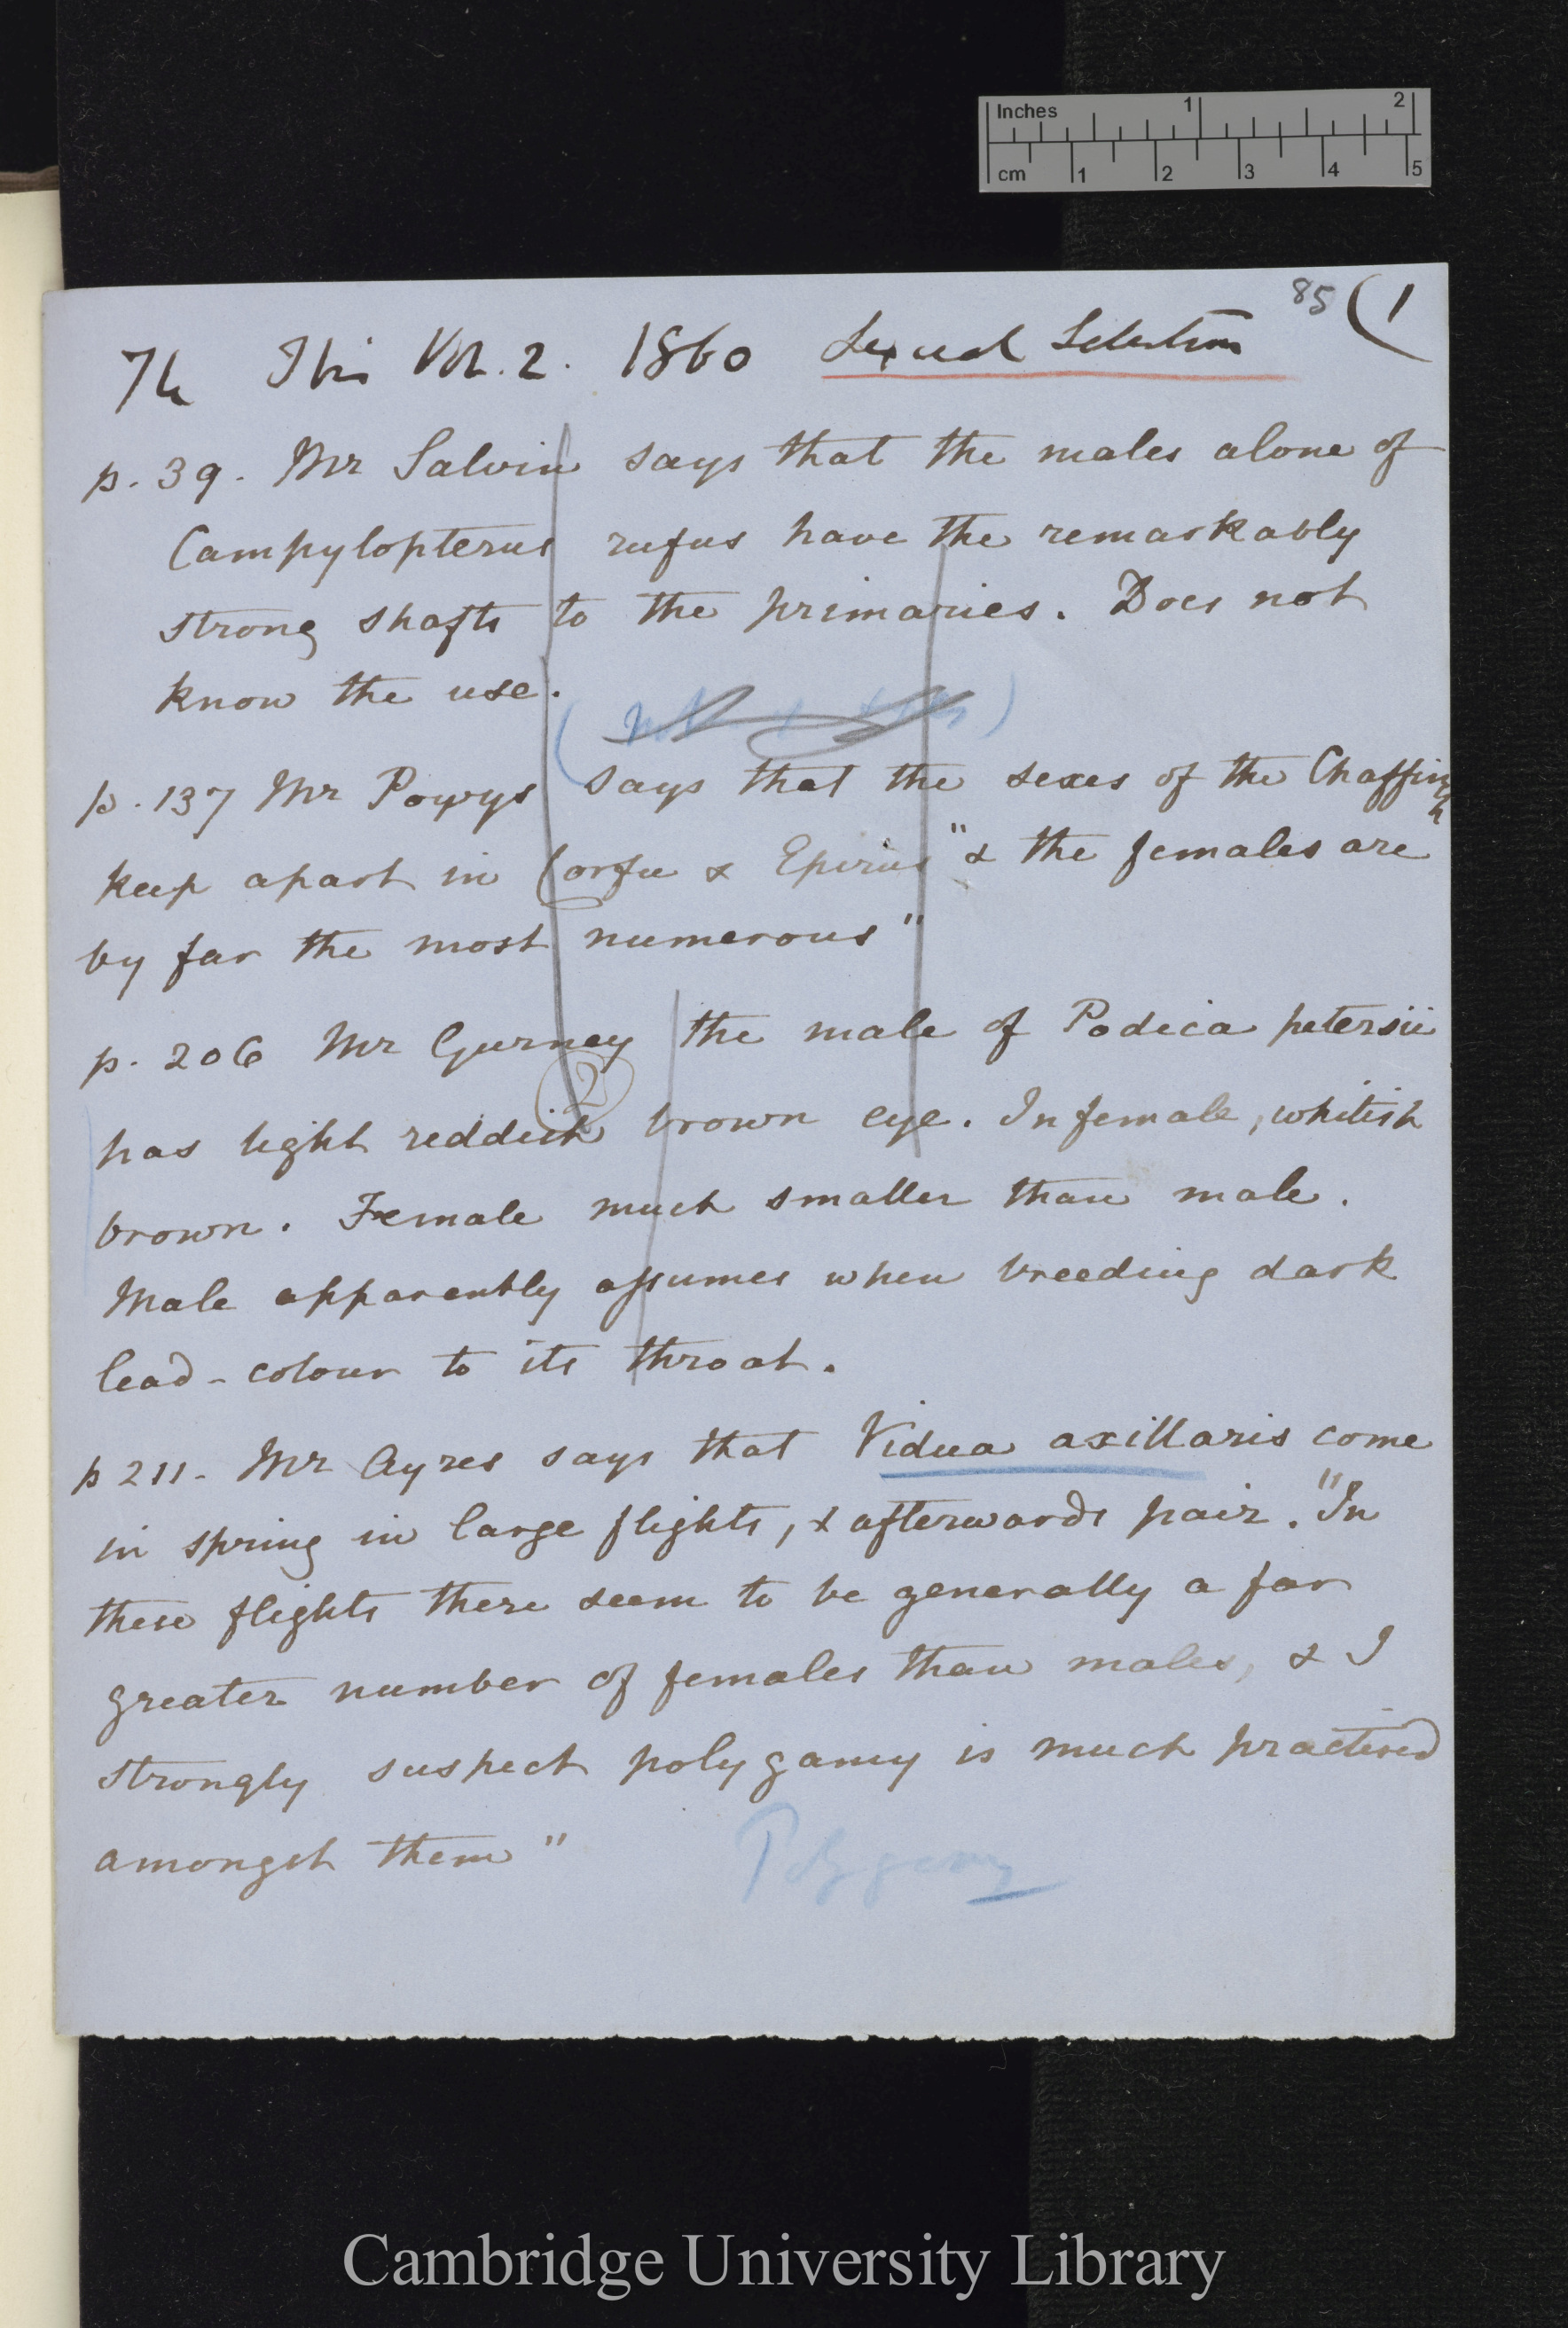 Inches 1 2
cm 1 2 3 4 5
85 (1
The Ibis Vol. 2. 1860 Sexual Selection
p. 39. Mr Salvin says that the males alone of
Campylopterus rufus have the remarkably
strong shafts to the primaries. Does not
know the use.
p. 137 Mr Powys says that the sexes of the Chaffinch
keep apart in Corfu & Epirus "& the females are
by far the most numerous"
p. 206 Mr Gurney the male of Podica petersii
2
has light reddish brown eye. In female, whitish
brown. Female much smaller than male.
Male apparently assumes when breeding dark
lead-colour to its throat.
p 211. Mr Ayres says that Vidua axillaris come
in spring in large flights, & afterwards pair. "In
these flights there seem to be generally a far
greater number of females than males, & I
strongly suspect polygamy is much practised
amongst them"
Polygamy
Cambridge University Library